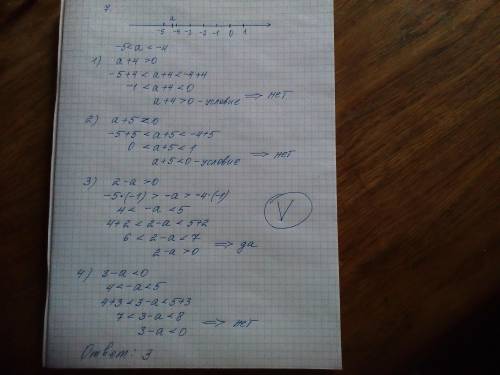 7.
a
-5 -4 -3 -2 -1 0 1
-5<a<-4
1) a+4>0
-5+4<a+4<-4+4
-1<a+4<0
a+4>0-условие ⇒ нет
2) a+5<0
-5+5<a+5<-4+5
0<a+5<1
a+5<0-условие ⇒ нет
3) 2-a>0
-5·(-1)>-a>-4·(-1)
4<-a<5
4+2<2-a<5+2
6<2-a<7
2-a>0 ⇒ да
V
4) 3-a<0
4<-a<5
4+3<3-a<5+3
7<3-a<8
3-a<0 ⇒ нет
Ответ: 3